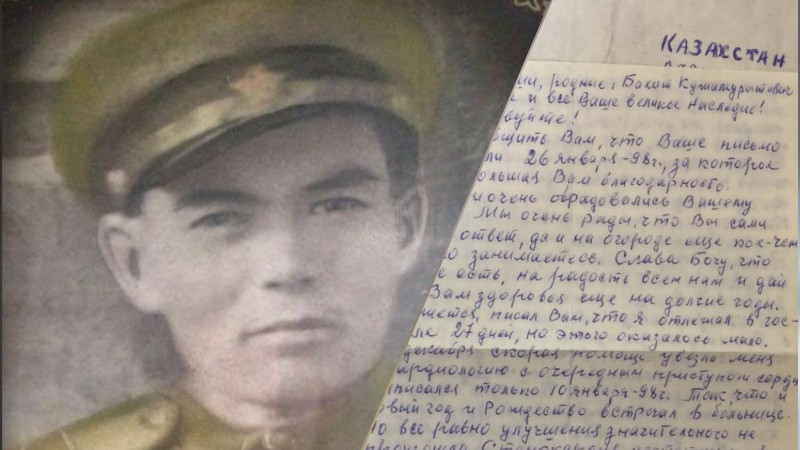 КАЗАХСТАН
родные, Бакот Кужамуратович
и все Ваше великое Наследие!
Вам, что Ваше письмо
26 января-98г., за которое
Вам благодарность.
очень обрадовались Вашему
Мы очень рады, что Вы сами
ответ, да и на огороде еще кое-чем
занимаетесь. Слава Богу, что
есть, на радость всем нам и дай
Вам здоровья еще на долгие годы.
писал Вам, что я отлежал в гос-
27 дней, но этого оказалось мало.
декабря скорая помощь увезла меня
с очередным приступом сердца
только 10 январь-98г. Так, что и
год и Рождество встречал в больнице.
все равно улучшения значительного не